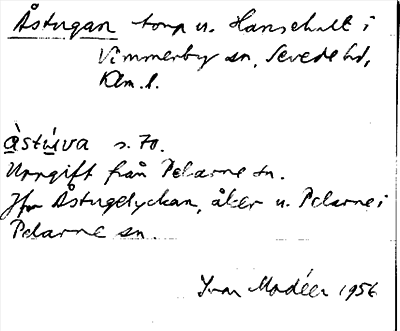 Åstugan torp u. Hanshult i
Vimmerby sn, Sevede hd,
Klm. l.
åstu̇va s. 70.
Uppgift från Pelarne sn.
Jfr Åstugelyckan, åker u. Pelarne i
Pelarne sn.
Ivar Modéer 1956